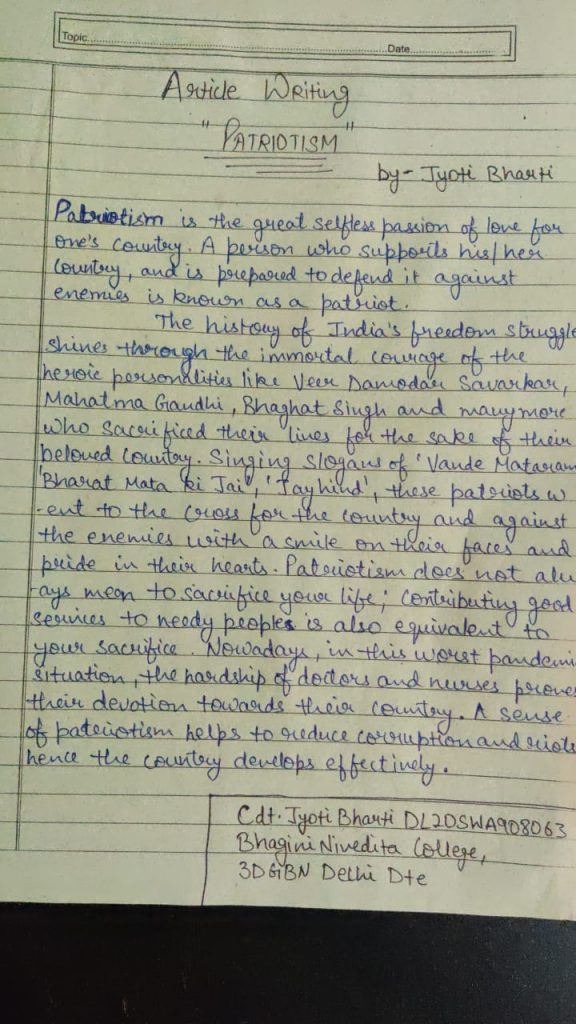 Topic
Date
Article Writing
"PATRIOTISM"
by- Jyoti Bharti
Patriotism is the great selfless passion of love for
one's country. A person who supports his/her
country, and is prepared to defend it against
enemies is known as a patriot.
The history of India's freedom struggle
shines through the immortal courage of the
heroic personalities like Veer Damodar Savarkar,
Mahatma Gandhi, Bhaghat Singh and many more
who sacrificed their lives for the sake of their
beloved country. Singing slogans of 'Vande Mataram
'Bharat Mata ki Jai', 'Jayhind', these patriots w
-ent to the cross for the country and against
the enemies with a smile on their faces and
pride in their hearts. Patriotism does not alw
-ays mean to sacrifice your life; contributing good
services to needy peoples is also equivalent to
your sacrifice. Nowadays, in this worst pandemi
situation, the hardship of doctors and nurses proves
their devotion towards their country. A sense
of pateriotism helps to reduce corruption and riots
hence the country develops effectively.
Cdt. Jyoti Bharti DL20SWA908063
Bhagini Nivedita College,
3DGBN Delhi Dte